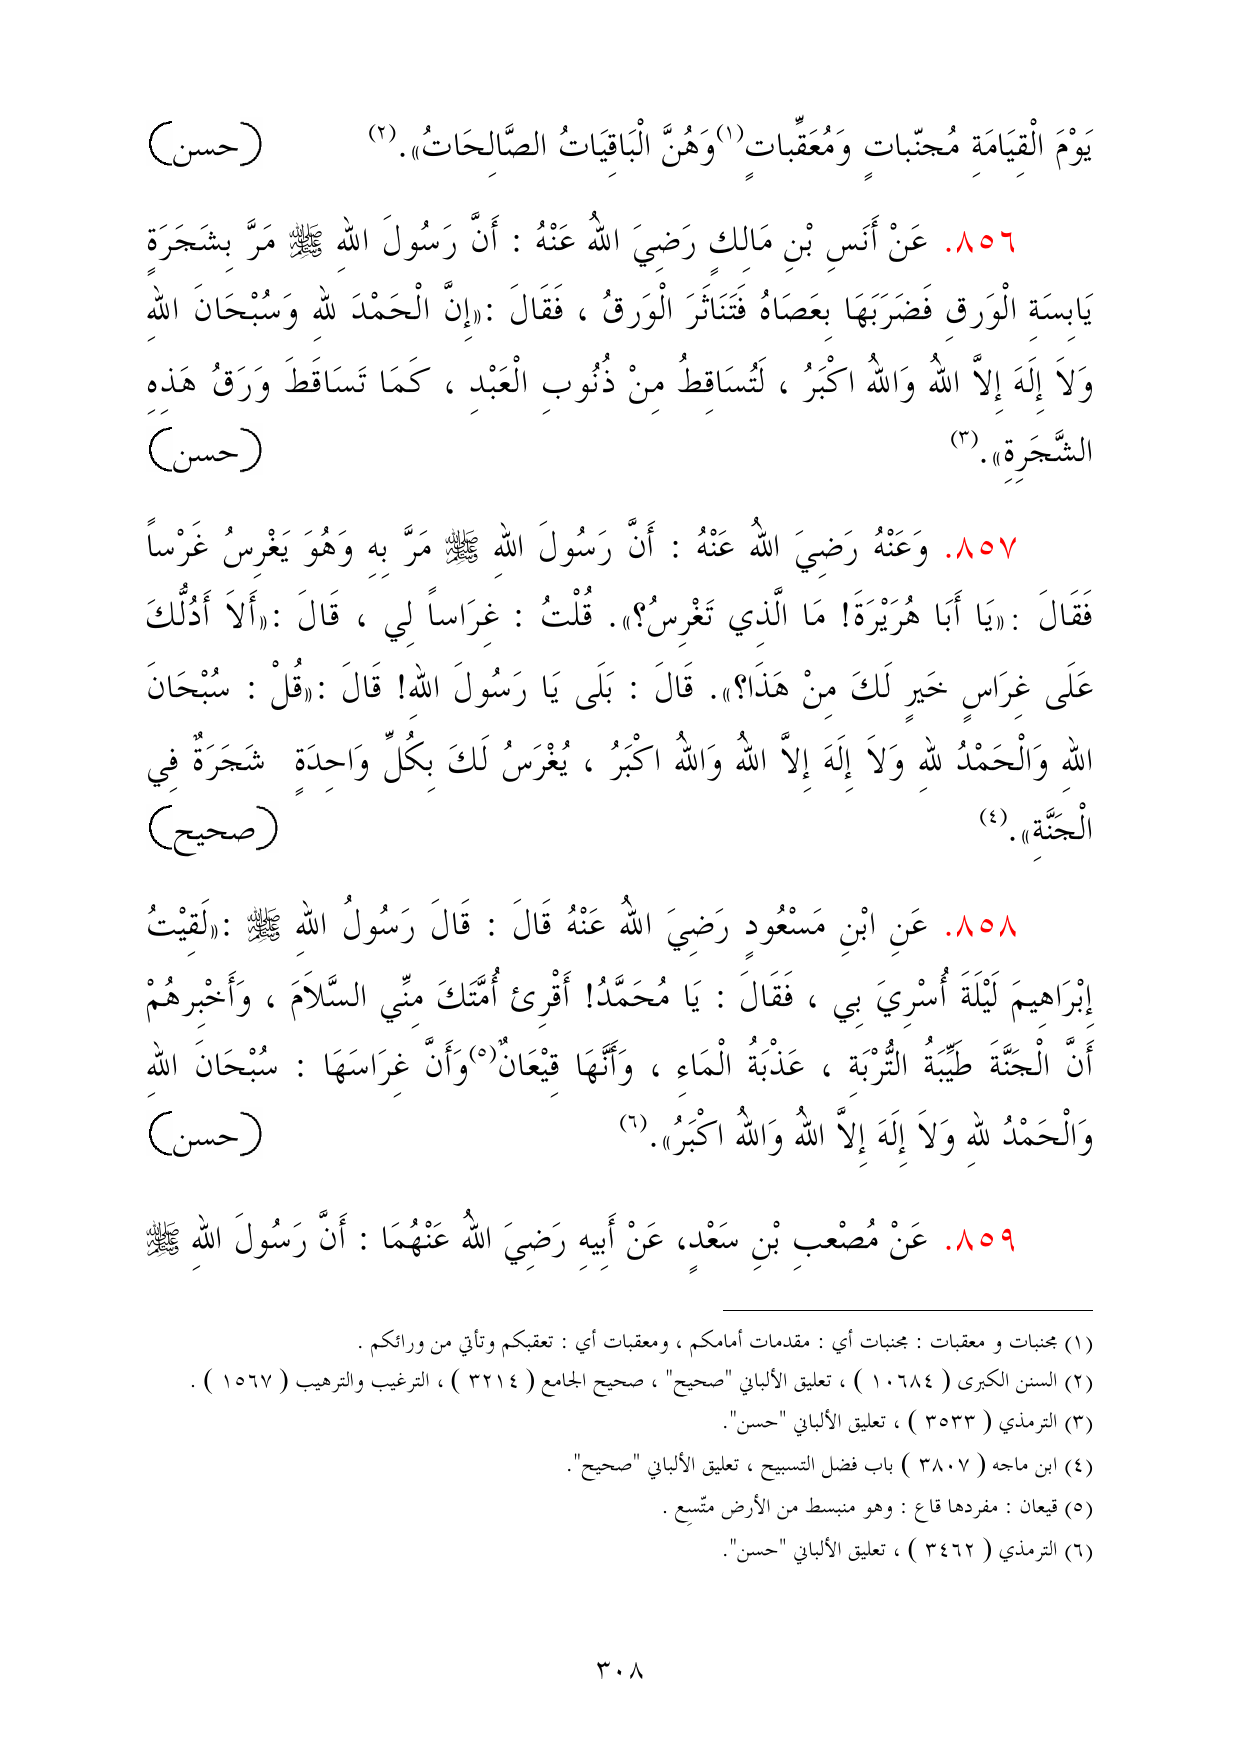 يَوْمَ الْقِيَامَةِ مُجنّباتٍ وَمُعَقِّباتٍ(١)وَهُنَّ الْبَاقِيَاتُ الصَّالِحَاتُ».(٢) (حسن)
٨٥٦. عَنْ أَنَسِ بْنِ مَالِكٍ رَضِيَ اللهُ عَنْهُ : أَنَّ رَسُولَ اللهِ ﷺ مَرَّ بِشَجَرَةٍ
يَابِسَةِ الْوَرِقِ فَضَرَبَهَا بِعَصَاهُ فَتَنَاثَرَ الْوَرقُ ، فَقَالَ :«إِنَّ الْحَمْدَ للهِ وَسُبْحَانَ اللهِ
وَلاَ إِلَهَ إِلاَّ اللهُ وَاللهُ اكْبَرُ ، لَتُسَاقِطُ مِنْ ذُنُوبِ الْعَبْدِ ، كَمَا تَسَاقَطَ وَرَقُ هَذِهِ
الشَّجَرِةِ».(٣) (حسن)
٨٥٧. وَعَنْهُ رَضِيَ اللهُ عَنْهُ : أَنَّ رَسُولَ اللهِ ﷺ مَرَّ بِهِ وَهُوَ يَغْرِسُ غَرْساً
فَقَالَ :«يَا أَبَا هُرَيْرَةَ! مَا الَّذِي تَغْرِسُ؟». قُلْتُ : غِرَاساً لِي ، قَالَ :«أَلاَ أَدُلُّكَ
عَلَى غِرَاسٍ خَيرٍ لَكَ مِنْ هَذَا؟». قَالَ : بَلَى يَا رَسُولَ اللهِ! قَالَ :«قُلْ : سُبْحَانَ
اللهِ وَالْحَمْدُ للهِ وَلاَ إِلَهَ إِلاَّ اللهُ وَاللهُ اكْبَرُ ، يُغْرَسُ لَكَ بِكُلِّ وَاحِدَةٍ شَجَرَةٌ فِي
الْجَنَّةِ».(٤) (صحيح)
٨٥٨. عَنِ ابْنِ مَسْعُودٍ رَضِيَ اللهُ عَنْهُ قَالَ : قَالَ رَسُولُ اللهِ ﷺ :«لَقِيْتُ
إِبْرَاهِيمَ لَيْلَةَ أُسْرِيَ بِي ، فَقَالَ : يَا مُحَمَّدُ! أَقْرِئ أُمَّتَكَ مِنِّي السَّلاَمَ ، وَأَخْبِرهُمْ
أَنَّ الْجَنَّةَ طَيِّبَةُ التُّرْبَةِ ، عَذْبَةُ الْمَاءِ ، وَأَنَّهَا قِيْعَانٌ(٥)وَأَنَّ غِرَاسَهَا : سُبْحَانَ اللهِ
وَالْحَمْدُ للهِ وَلاَ إِلَهَ إِلاَّ اللهُ وَاللهُ اكْبَرُ».(٦) (حسن)
٨٥٩. عَنْ مُصْعَبِ بْنِ سَعْدٍ، عَنْ أَبِيهِ رَضِيَ اللهُ عَنْهُمَا : أَنَّ رَسُولَ اللهِ ﷺ
(١) مجنبات و معقبات : مجنبات أي : مقدمات أمامكم ، ومعقبات أي : تعقبكم وتأتي من ورائكم .
(٢) السنن الكبرى ( ١٠٦٨٤ ) ، تعليق الألباني "صحيح" ، صحيح الجامع ( ٣٢١٤ ) ، الترغيب والترهيب ( ١٥٦٧ ) .
(٣) الترمذي ( ٣٥٣٣ ) ، تعليق الألباني "حسن".
(٤) ابن ماجه ( ٣٨٠٧ ) باب فضل التسبيح ، تعليق الألباني "صحيح".
(٥) قيعان : مفردها قاع : وهو منبسط من الأرض متّسِع .
(٦) الترمذي ( ٣٤٦٢ ) ، تعليق الألباني "حسن".
٣٠٨